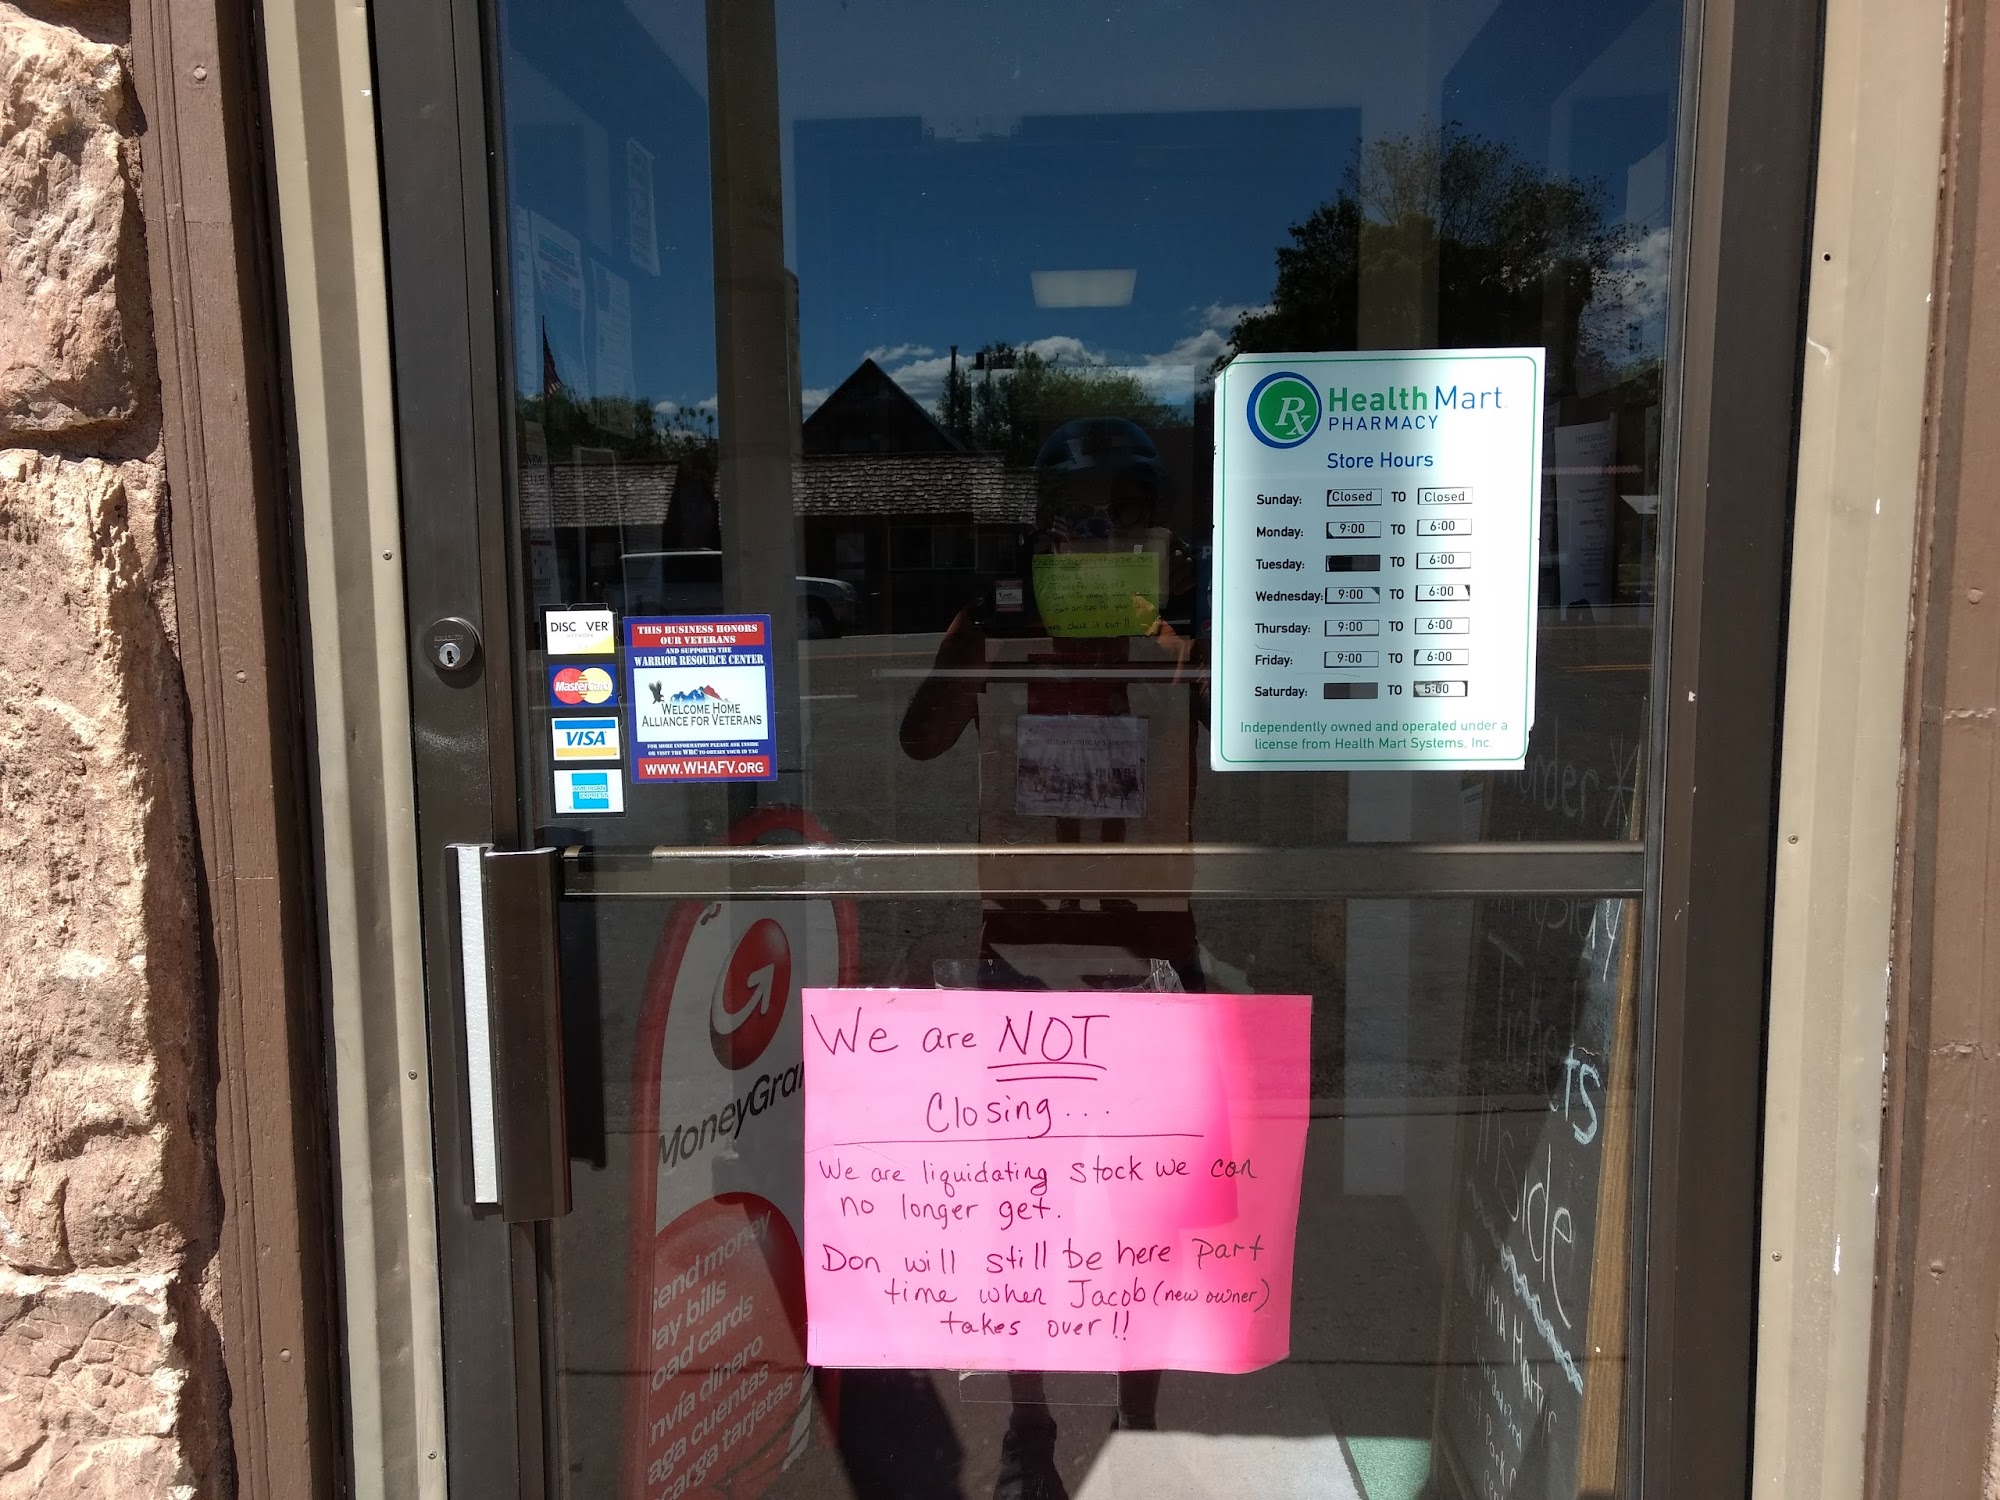 Health Mart
PHARMACY
Rx
Store Hours
Sunday: Closed TO Closed
Monday: 9:00 TO 6:00
Tuesday: TO 6:00
Wednesday: 9:00 TO 6:00
Thursday: 9:00 TO 6:00
Friday: 9:00 TO 6:00
Saturday: TO 5:00
Independently owned and operated under a
license from Health Mart Systems, Inc.
DISC VER
NETWORK
MasterCard
VISA
AMERICAN
EXPRESS
THIS BUSINESS HONORS
OUR VETERANS
AND SUPPORTS THE
WARRIOR RESOURCE CENTER
WELCOME HOME
ALLIANCE FOR VETERANS
FOR MORE INFORMATION PLEASE ASK INSIDE
OR VISIT THE WRC TO OBTAIN YOUR ID TAG
WWW.WHAFV.ORG
MoneyGra
Send money
Pay bills
oad cards
nvía dinero
aga cuentas
carga tarjetas
We are NOT
Closing...
We are liquidating stock we can
no longer get.
Don will still be here part
time when Jacob (new owner)
takes over!!